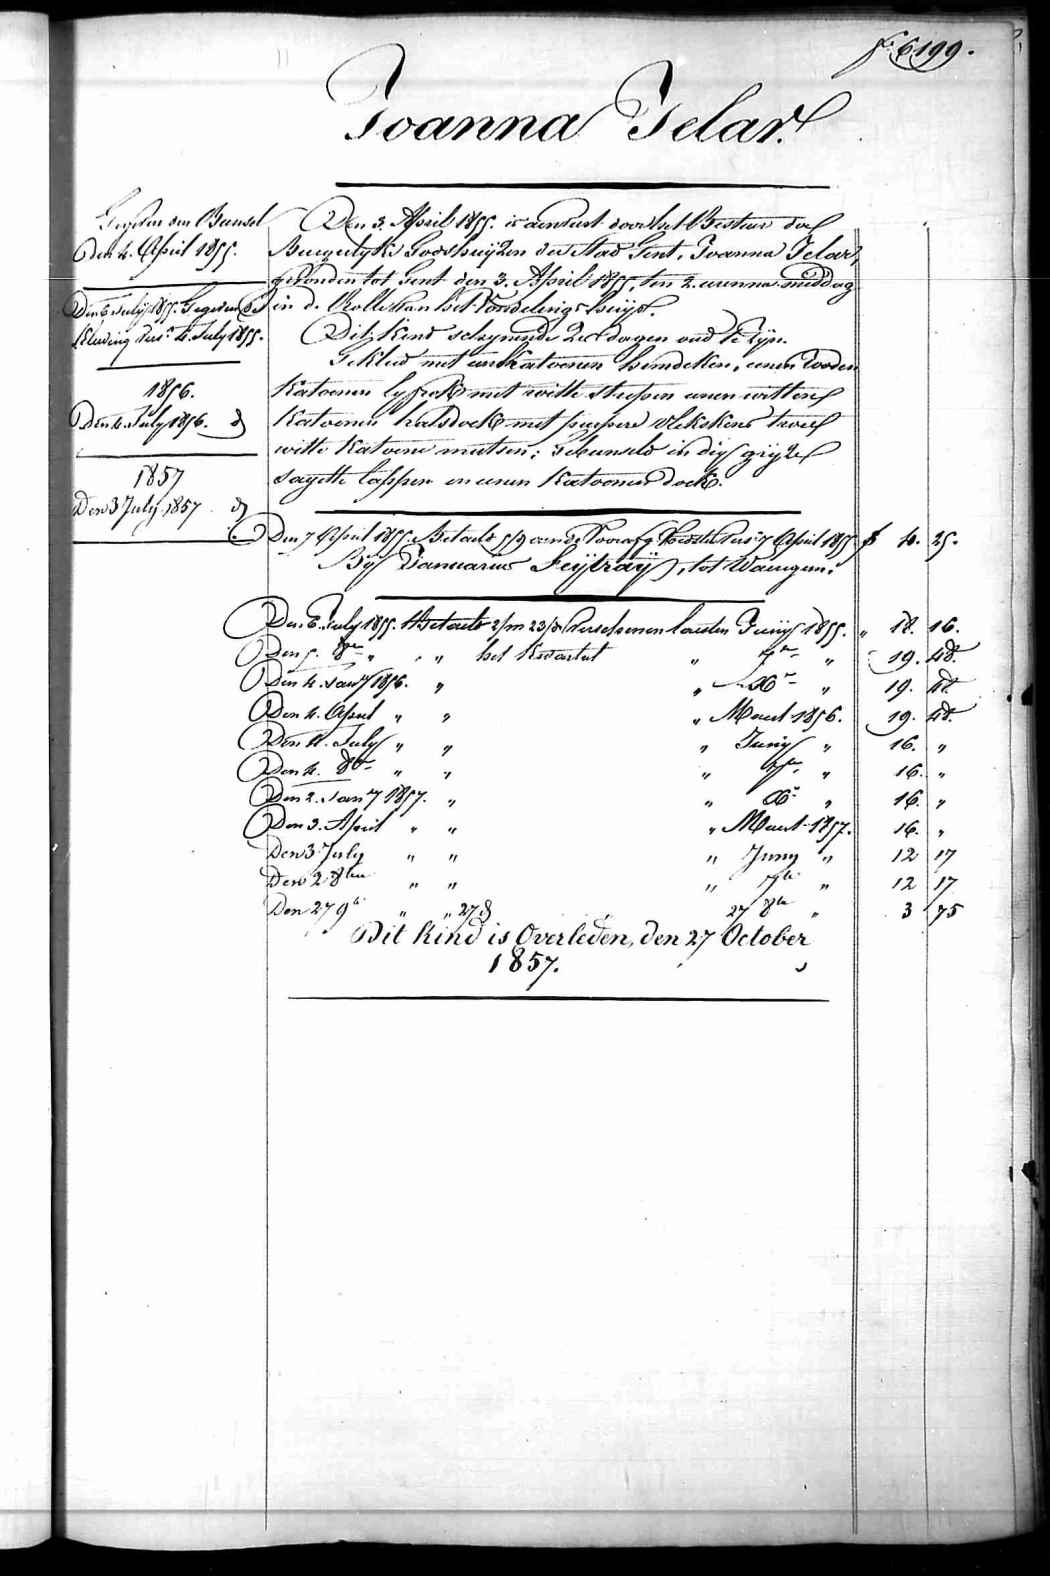 fo 6199.
Joanna Jelar.
Gegeven den Bunsel
Den 4. April 1855.
Den 6 July 1855. Gegeven de
Kleeding Vers. 4. July 1855.
1856.
Den 4. July 1856. d
1857
Den 3 July 1857 d
Den 3. April 1855. is aenveert door het Bestier der
Burgerlyke Godshuijzen der Stad Gent, Joanna Jelar,
gevonden tot Gent den 3. April 1855. ten 2. uren na middag
in de Rolle van het Vondelings huijs.
Dit Kind schynende 2 dagen oud te zyn.
Gekleed met een Katoenen hemdeken, eenen rooden
Katoenen lyfrok met witte strepen eenen witten
Katoenen halsdoek met purpere vlekskens twee
witte Katoene mutsen; Gebunseld in dry gryze
sayette lappen en eenen Katoenen doek.
Den 7 April 1855. Betaeld aen de Voorafg. Vers. 7 April 1855 f 4. 25.
By Januarius Feijtraij, tot Waeregem.
Den 6. July 1855. Betaeld 2/m 23/d Verschenen laesten Junij 1855. " 18. 16.
Den 5. 8ber " " het Kwartael " 7er " 19. 48.
Den 4. Jany 1856. " " Xr " 19. 48.
Den 4. April " " " Maert 1856. 19. 48.
Den 4. July " " " Junij " 16. "
Den 4. 8br " " " 7er. " 16. "
Den 2. Jany 1857. " " Xr " 16. "
Den 3. April " " " Maert 1857. 16. "
Den 3 July " " " Juny " 12 17
Den 2 8ber " " " 7ber " 12 17
Den 27 9br " " 27 d 27 8br " 3 75
Dit Kind is Overleden, den 27 October
1857.